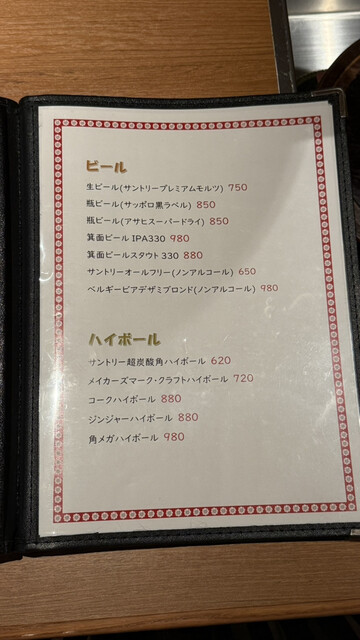 ビール
生ビール(サントリープレミアムモルツ) 750
瓶ビール(サッポロ黒ラベル) 850
瓶ビール(アサヒスーパードライ) 850
箕面ビール IPA330 980
箕面ビールスタウト 330 880
サントリーオールフリー(ノンアルコール) 650
ベルギービアデザミブロンド(ノンアルコール) 980
ハイボール
サントリー超炭酸角ハイボール 620
メイカーズマーク・クラフトハイボール 720
コークハイボール 880
ジンジャーハイボール 880
角メガハイボール 980